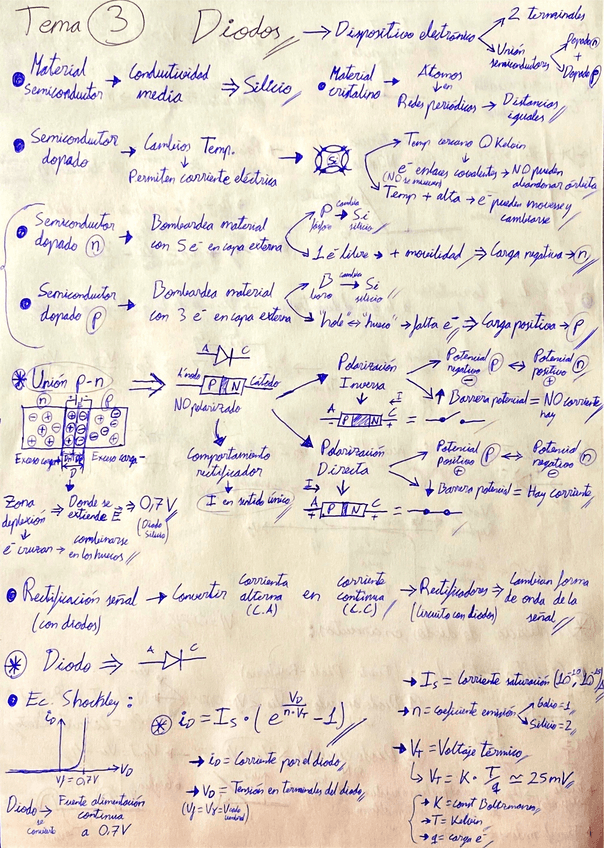 Tema 3 Diodos → Dispositivo electrónico
2 terminales
Unión semiconductores
Dopado n
+
Dopado p
Material semiconductor → Conductividad media ⇒ Silicio
Material cristalino → Átomos en Redes periódicas → Distancias iguales
Semiconductor dopado → Cambios Temp. ↓ Permiten corriente eléctrica → Si
Temp cercano 0 Kelvin
↓
e⁻ enlaces covalentes → NO pueden abandonar órbita
(NO se mueven)
Temp + alta → e⁻ pueden moverse y cambiarse
Semiconductor dopado n → Bombardea material con 5 e⁻ en capa externa
P fósforo cambia → Si silicio
1 e⁻ libre → + movilidad ⇒ Carga negativa → n
Semiconductor dopado p → Bombardea material con 3 e⁻ en capa externa
B boro cambia → Si silicio
"hole" ↔ "hueco" → falta e⁻ ⇒ Carga positiva → p
Unión p-n ⇒
n p
Exceso carga + Exceso carga -
D
Zona deplexión ⇒ Donde se extiende E ⇒ 0,7 V
(Diodo Silicio)
e⁻ cruzan → combinarse en los huecos
Ánodo P N Cátodo
NO polarizado
↓
Comportamiento rectificador
↓
I en sentido único
Polarización Inversa
Potencial negativo p ↔ Potencial positivo n
⊖ ⊕
↑ Barrera potencial = NO corriente hay
A P N C I
- +
Polarización Directa
Potencial positivo p ↔ Potencial negativo n
⊕ ⊖
↓ Barrera potencial = Hay corriente
I A P N C
Rectificación señal (con diodos) → Convertir corriente alterna (C.A) en corriente continua (C.C) → Rectificadores (Circuito con diodos) ⇒ Cambian forma de onda de la señal
Diodo ⇒ A C
Ec. Shockley:
i_D = I_S · (e^(V_D / n·V_T) - 1)
i_D
V_D
Vγ = 0,7V
Diodo → se convierte Fuente alimentación continua a 0.7V
→ i_D = Corriente por el diodo
→ V_D = Tensión en terminales del diodo
→ I_S = Corriente saturación
→ n = coeficiente emisión
Galio = 1
Silicio = 2
→ V_T = Voltaje térmico
↳ V_T = K · T/q ≃ 25 mV
→ K = const Boltzmann
→ T = Kelvin
→ q = carga e⁻